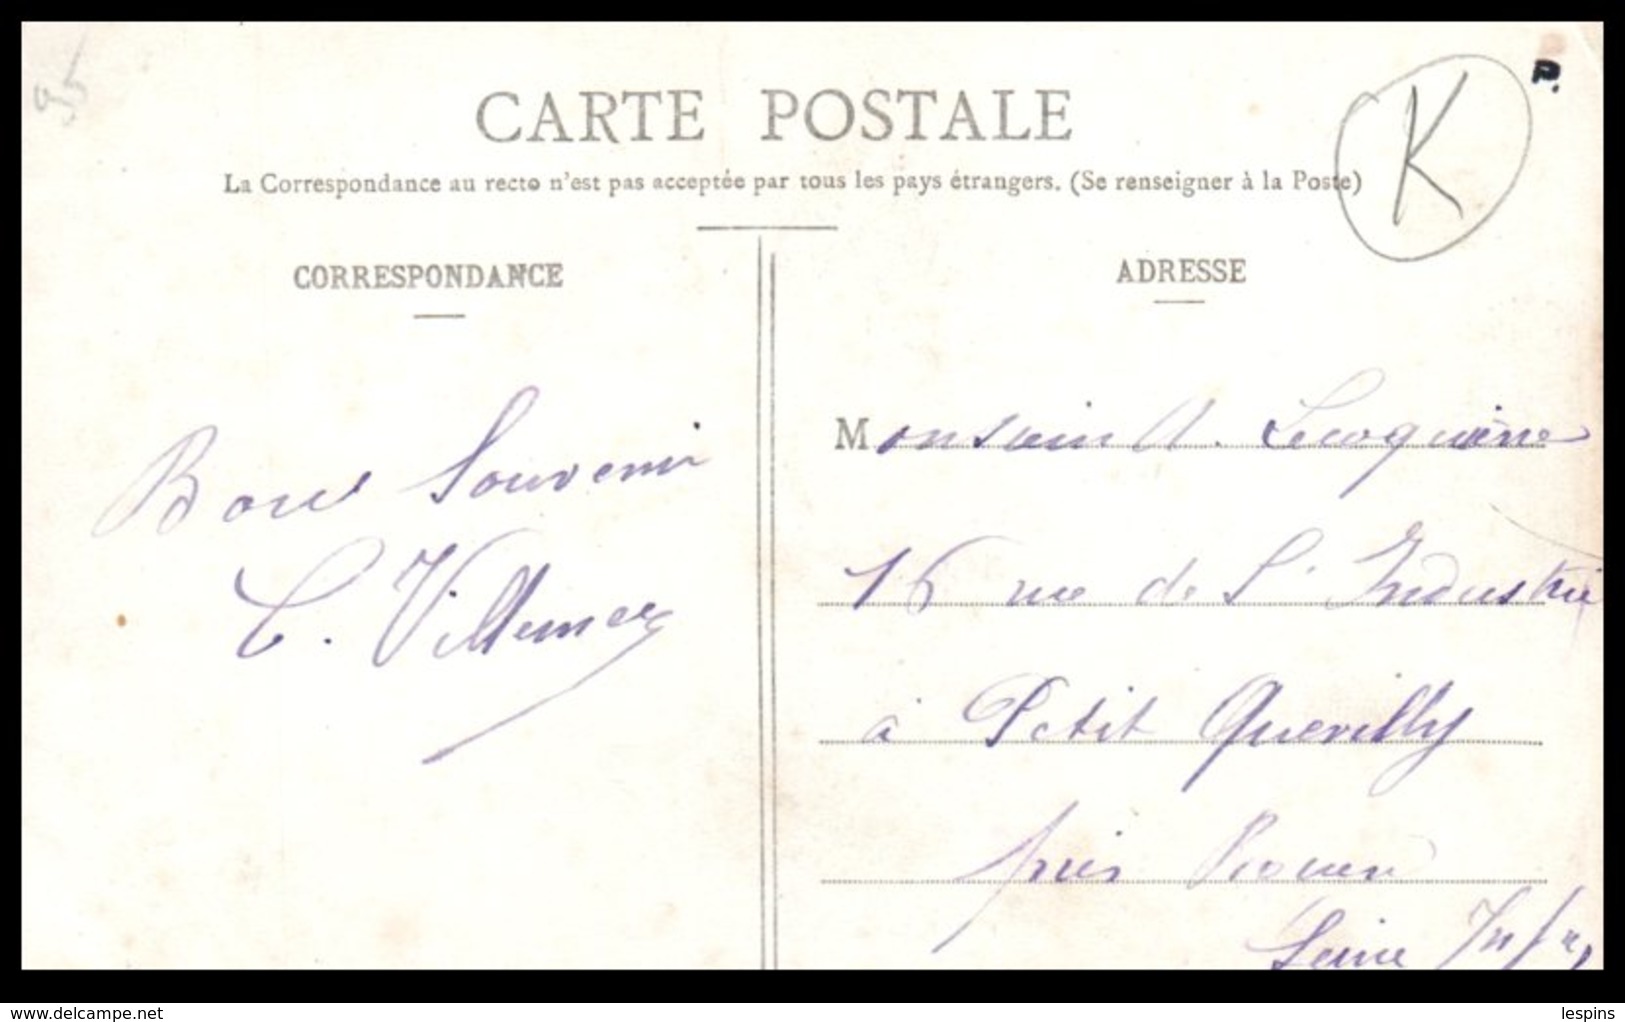 95
CARTE POSTALE
K
P.
La Correspondance au recto n'est pas acceptée par tous les pays étrangers. (Se renseigner à la Poste)
CORRESPONDANCE
Bons Souvenir
C. Villemer
ADRESSE
Monsieur A.
16 rue de L'Industrie
à Petit Quevilly
près Rouen
Seine Infre
www.delcampe.net
lespins